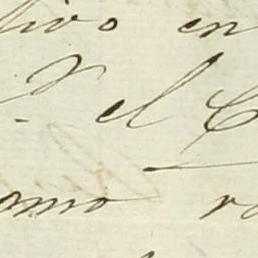 tivo en
el C
omo